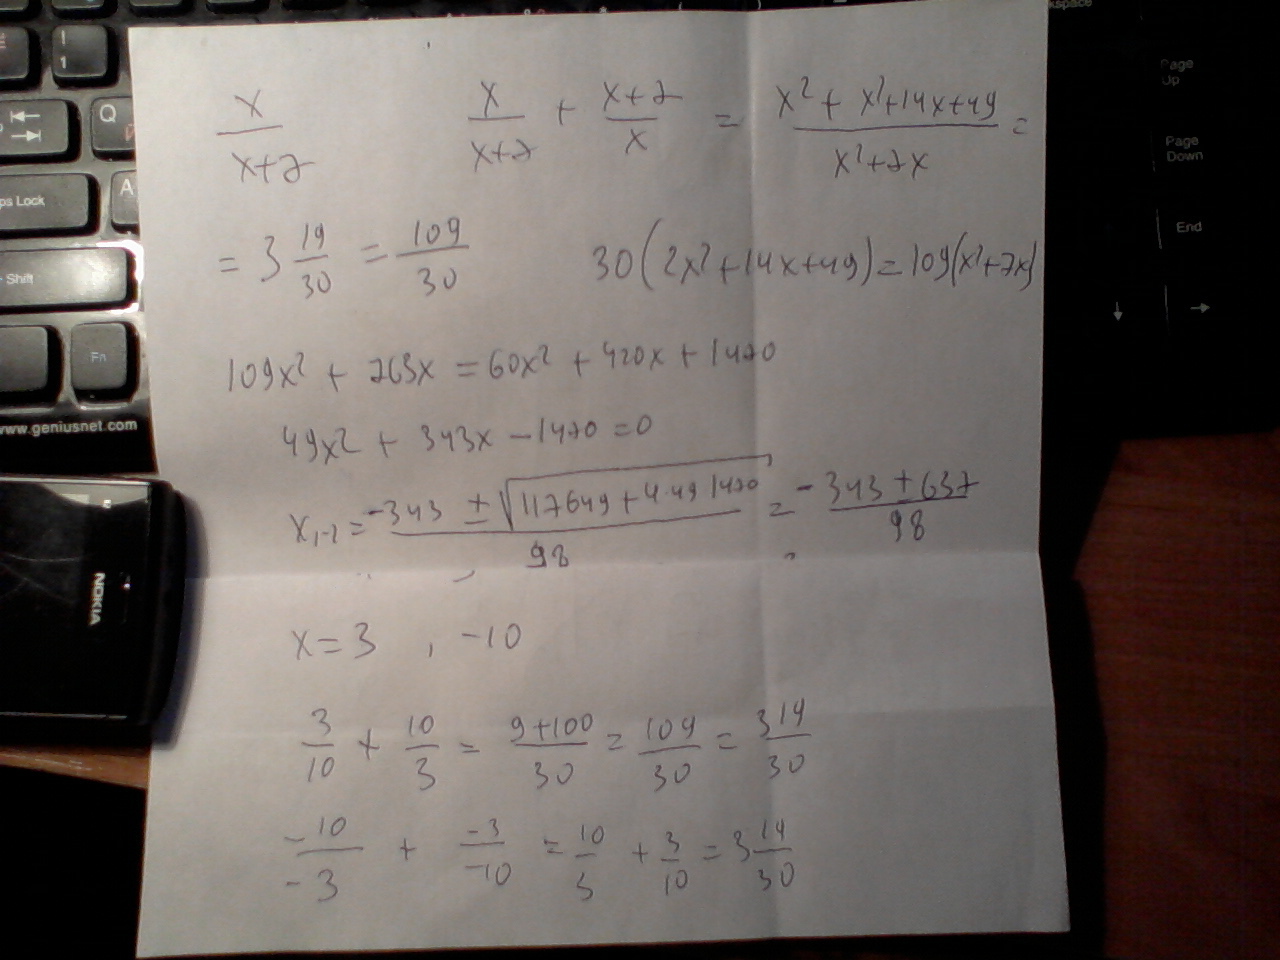 x/(x+7)   x/(x+7) + (x+7)/x = (x²+x²+14x+49)/(x²+7x) =
= 3 19/30 = 109/30   30(2x²+14x+49)=109(x²+7x)
109x² + 763x = 60x² + 420x + 1470
49x² + 343x - 1470 = 0
x₁,₋₂ = (-343 ± √(117649+4·49·1470))/98 = (-343 ± 637)/98
x=3 , -10
3/10 + 10/3 = (9+100)/30 = 109/30 = 3 19/30
-10/-3 + -3/-10 = 10/3 + 3/10 = 3 19/30
Q
A
ps Lock
Shift
Fn
www.geniusnet.com
NOKIA
kspace
Page
Up
Page
Down
End